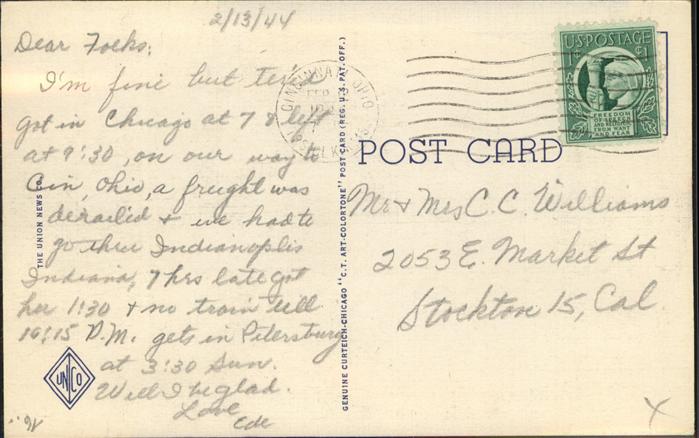 2/13/44
Dear Folks;
I'm fine but tired
got in Chicago at 7 & left
at 9:30, on our way to
Cin, Ohio, a freight was
derailed & we had to
go thru Indianoplis
Indiana, 7 hrs late got
her 1:30 & no train till
10:15 P.M. gets in Petersburg
at 3:30 Sun.
Will I be glad.
Love
THE UNION NEWS CO.
UNCO
GENUINE CURTEICH-CHICAGO "C.T. ART-COLORTONE" POST CARD (REG. U.S. PAT. OFF.)
CINCINNATI OHIO
FEB
US POSTAGE
1¢
FREEDOM
OF SPEECH
AND RELIGION
FROM WANT
AND FEAR
POST CARD
Mr & Mrs C. C. Williams
2053 E. Market St
Stockton 15, Cal.
X